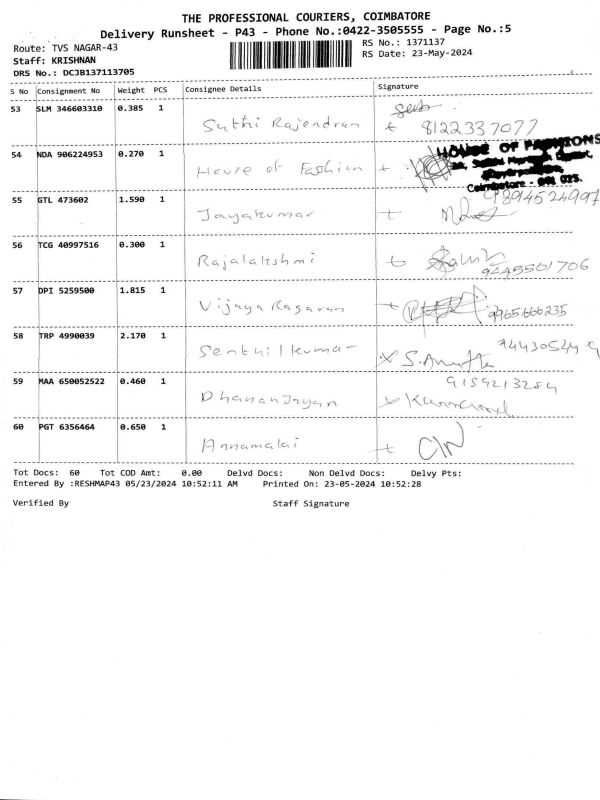 THE PROFESSIONAL COURIERS, COIMBATORE
Delivery Runsheet - P43 - Phone No.:0422-3505555 - Page No.:5
Route: TVS NAGAR-43
RS No.: 1371137
Staff: KRISHNAN
RS Date: 23-May-2024
DRS No.: DCJB137113705
S No Consignment No Weight PCS Consignee Details Signature
53 SLM 346603310 0.385 1
Sathi Rajendran 8122337077
54 NDA 906224953 0.270 1 HOUSE OF FASHIONS
House of Fashion
Coimbatore
55 GTL 473602 1.590 1 9894524997
Jayakumar
56 TCG 40997516 0.300 1
Rajalakshmi 9445501706
57 DPI 5259500 1.815 1
Vijaya Ragavan 9965666235
58 TRP 4990039 2.170 1
Senthilkumar
59 MAA 650052522 0.460 1 9159213284
Dhananjayan
60 PGT 6356464 0.650 1
Annamalai
Tot Docs: 60 Tot COD Amt: 0.00 Delvd Docs: Non Delvd Docs: Delvy Pts:
Entered By :RESHMAP43 05/23/2024 10:52:11 AM Printed On: 23-05-2024 10:52:28
Verified By Staff Signature